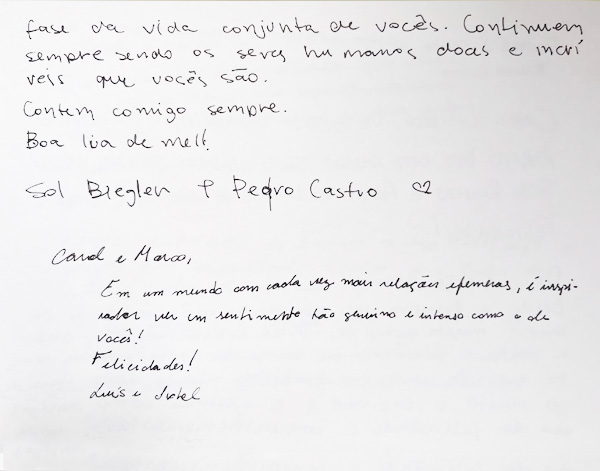 fase da vida conjunta de vocês. Continuem
sempre sendo os seres humanos doces e incrí
veis que vocês são.
Contem comigo sempre.
Boa lua de mel!
Sol Biegler + Pedro Castro ♡
Carol e Marco,
Em um mundo com cada vez mais relações efemeras, é inspi-
rador ver um sentimento tão genuino e intenso como o de
vocês!
Felicidades!
Luís e